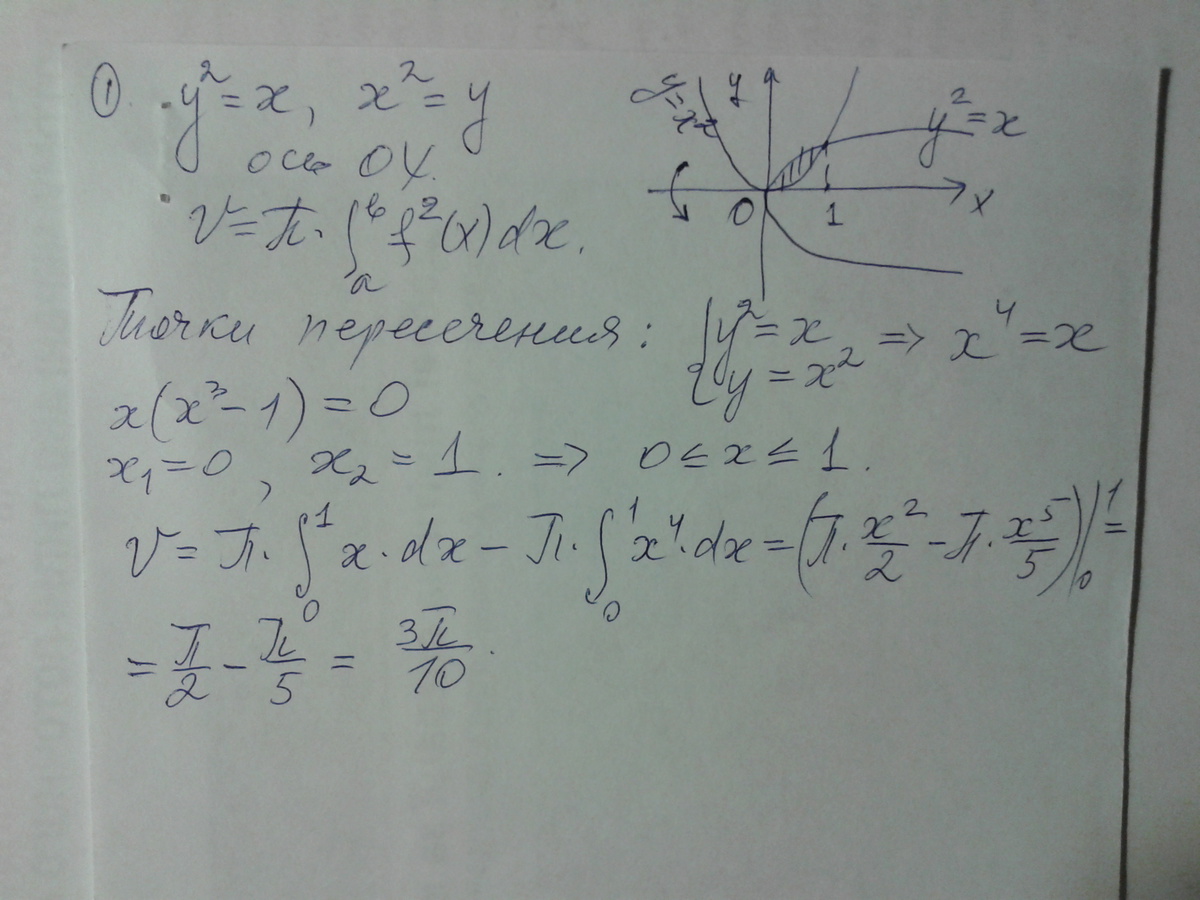 ① y² = x, x² = y
ось OX.
V = π · ∫ₐᵇ f²(x) dx.
y
y² = x
y = x²
0
1
x
Точки пересечения: { y² = x
y = x² => x⁴ = x
x(x³ - 1) = 0
x₁ = 0, x₂ = 1. => 0 ≤ x ≤ 1.
V = π · ∫₀¹ x · dx - π · ∫₀¹ x⁴ · dx = (π · x²/2 - π · x⁵/5)|₀¹ =
= π/2 - π/5 = 3π/10.